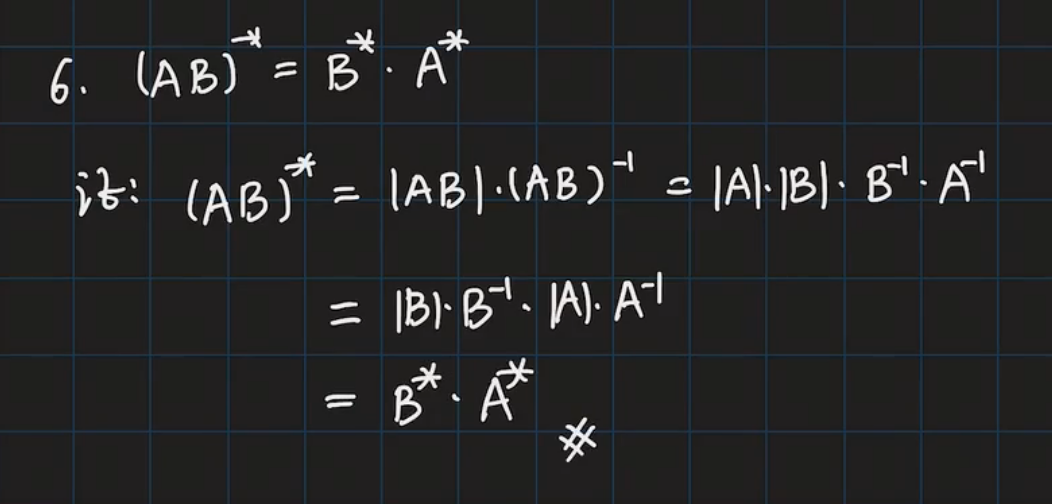 6. (AB)^* = B^* · A^*
证: (AB)^* = |AB|·(AB)^-1 = |A|·|B|· B^-1 · A^-1
= |B|· B^-1 · |A|· A^-1
= B^* · A^* #